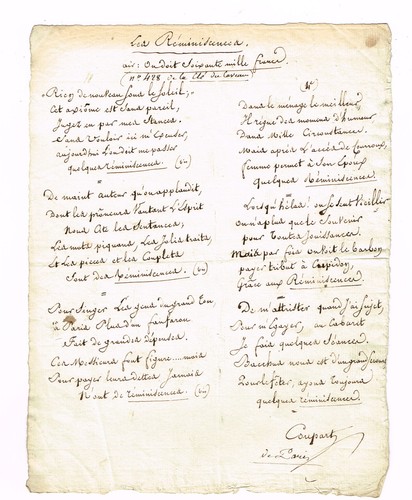 Les Réminiscences.
air: On doit soixante mille francs.
(n° 428 de la Clé du Caveau)
"Rien de nouveau sous le soleil",
Cet axiôme est sans pareil,
Jugez en par mes Stances.
Sans vouloir ici m'excuser,
aujourd'hui l'on doit me passer
quelques réminiscences. (bis)
De maint auteur qu'on applaudit,
Dont les prôneurs vantant l'esprit
Nous cite les Sentences;
Les mots piquans, les jolis traits,
Et les pièces et les Couplets
Sont des Réminiscences. (bis)
Pour Singer les gens du grand ton
à Paris Plus d'un fanfaron
Fait de grandes dépenses.
Ces Messieurs font figure....mais
Pour payer leurs dettes Jamais
N'ont de réminiscences. (bis)
Dans le ménage le meilleur,
Il règne des momens d'humeur
Dans Mille Circonstances.
Mais après l'accès de courroux,
femme permet à Son Epoux
quelques Réminiscences.
Lorsqu'hélas! on se sent Vieillir
on n'a plus que le Souvenir
pour toutes Jouissances.
Mais par fois on voit le barbon
payer tribut à Cupidon,
Grâce aux Réminiscences.
De m'attrister quand J'ai Sujet,
Pour m'égayer, au Cabaret
Je fais quelques Séances.
Bacchus nous est d'un grand secours
Pour le fêter, ayons toujours
quelques réminiscences.
Coupart
de Paris